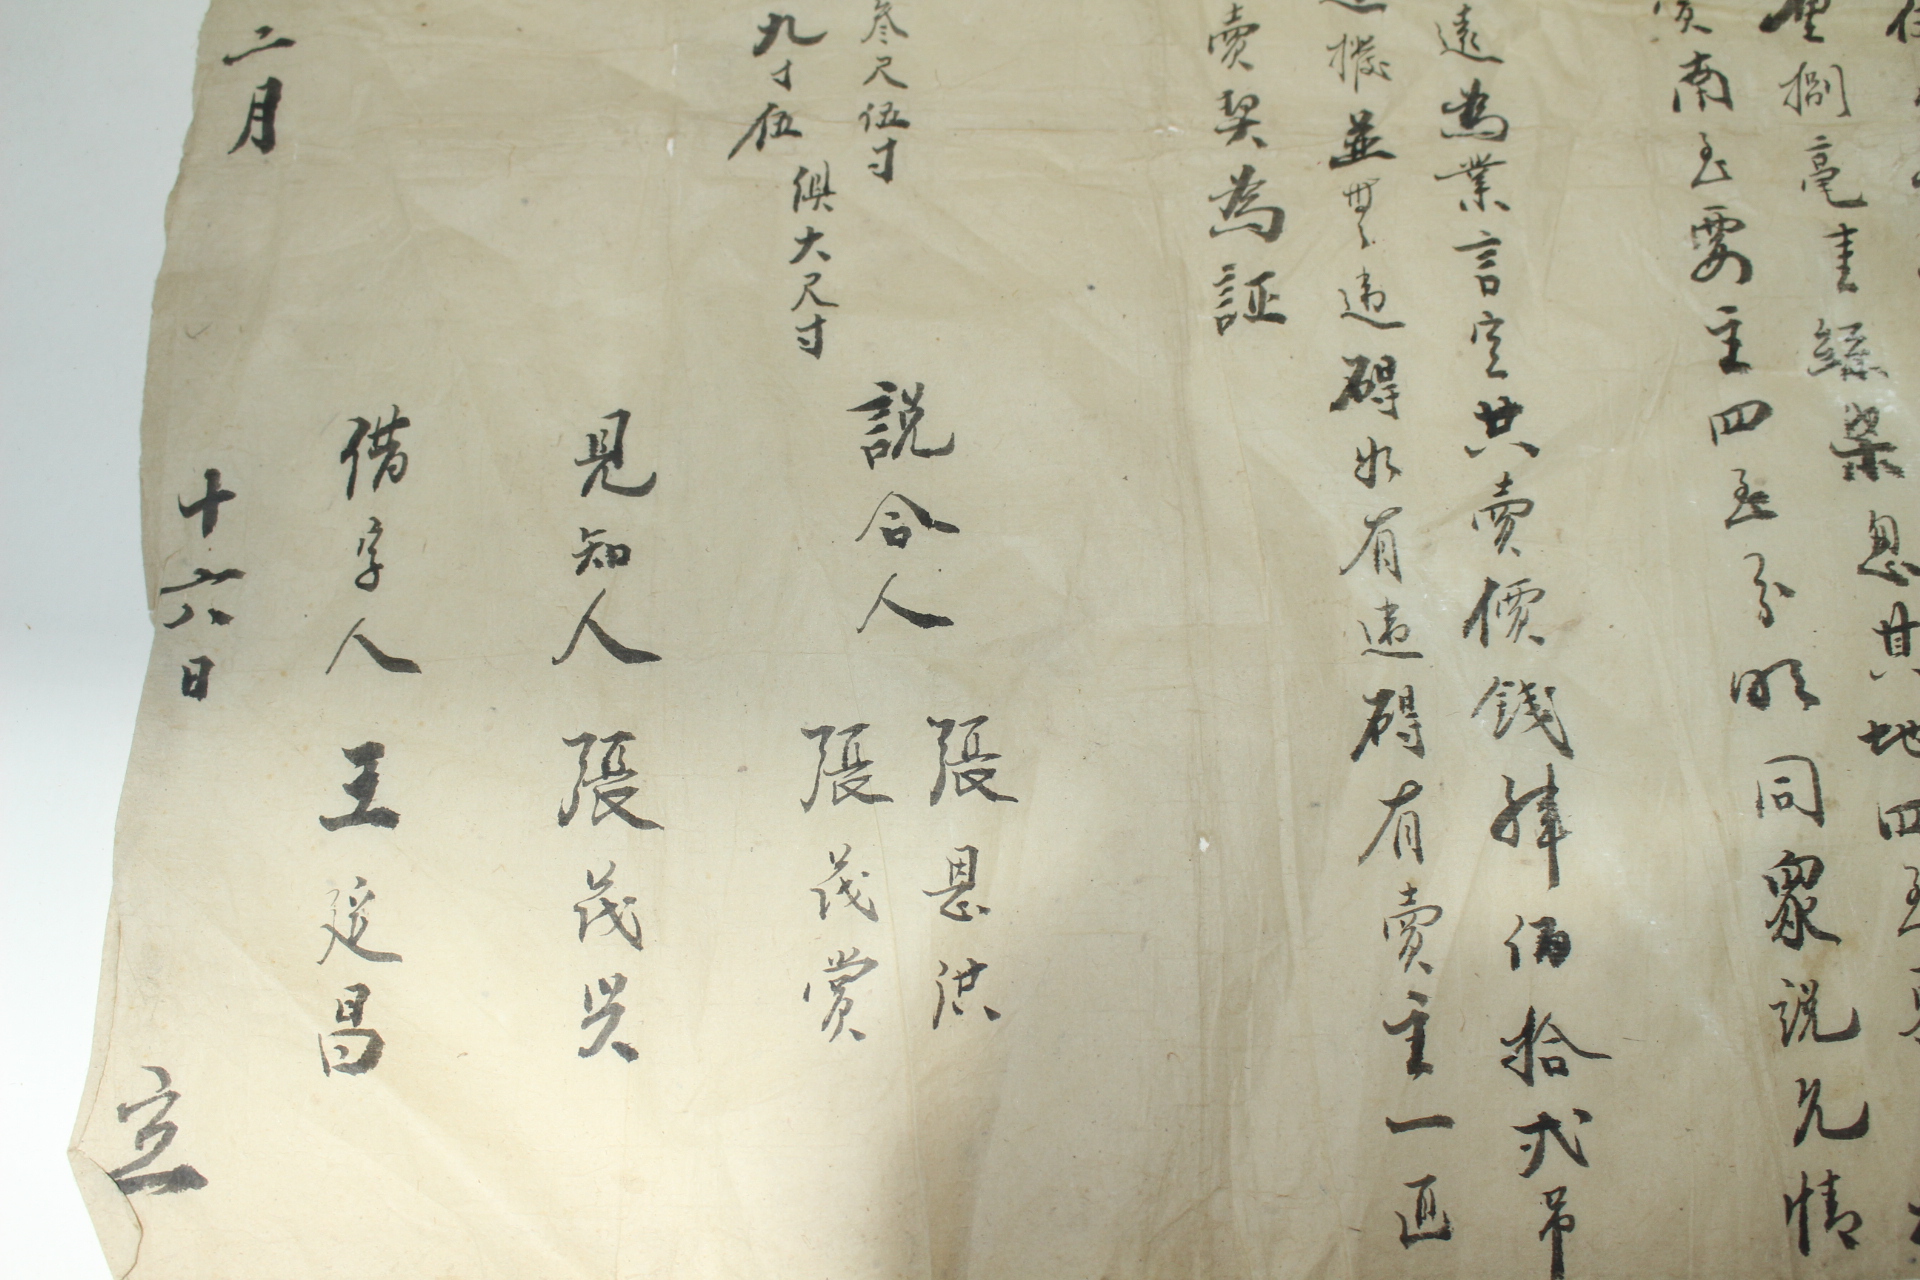 厘捌毫壹絲柒忽其地四至
南至要主四至分明同眾說允情
遠為業言定共賣價錢肆佰拾弍吊
撥並無違碍如有違碍有賣主一面
賣契為証
叁尺伍寸
九寸伍
俱大尺寸
說合人
張恩洪
張茂賞
見知人 張茂兴
借字人 王延昌
二月 十六日 立